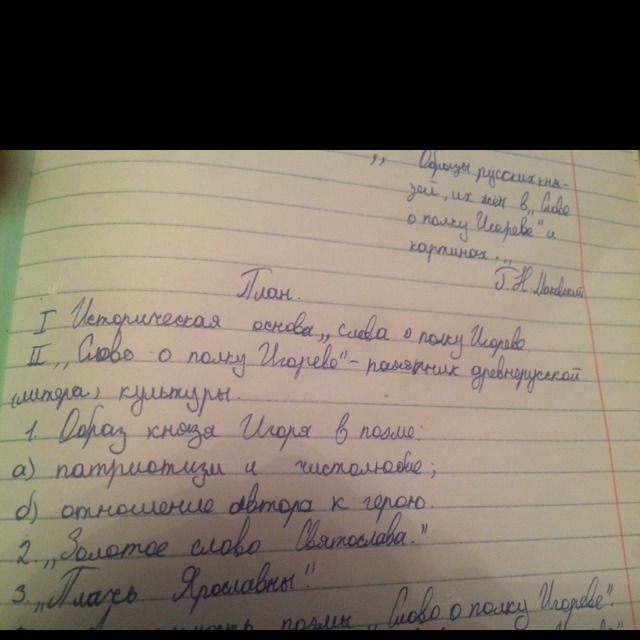 „ Образы русских кня-
зей, их жён в „Слово
о полку Игореве" и
картинах.„
Г. Н.
План.
I Историческая основа „слова о полку Игорево.
II „Слово о полку Игорево" - памятник древнерусской
культуры.
1. Образ князя Игоря в поэме:
а) патриотизм и чистолюбие;
б) отношение автора к герою.
2. „Золотое слово Святослава."
3. „Плачь Ярославны".
поэмы „Слово о полку Игореве".